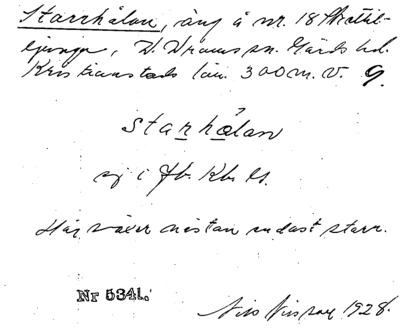 Starrhålan, äng å nr. 18 Skättil-
ljunga, V. Vrams sn. Gärds hd.
Kristianstads län. 300 m. V. g.
starhålan
ej i Jb. Kb. 
Här växer nästan endast starr.
Nr 5341.
Nils Nilsson 1928.